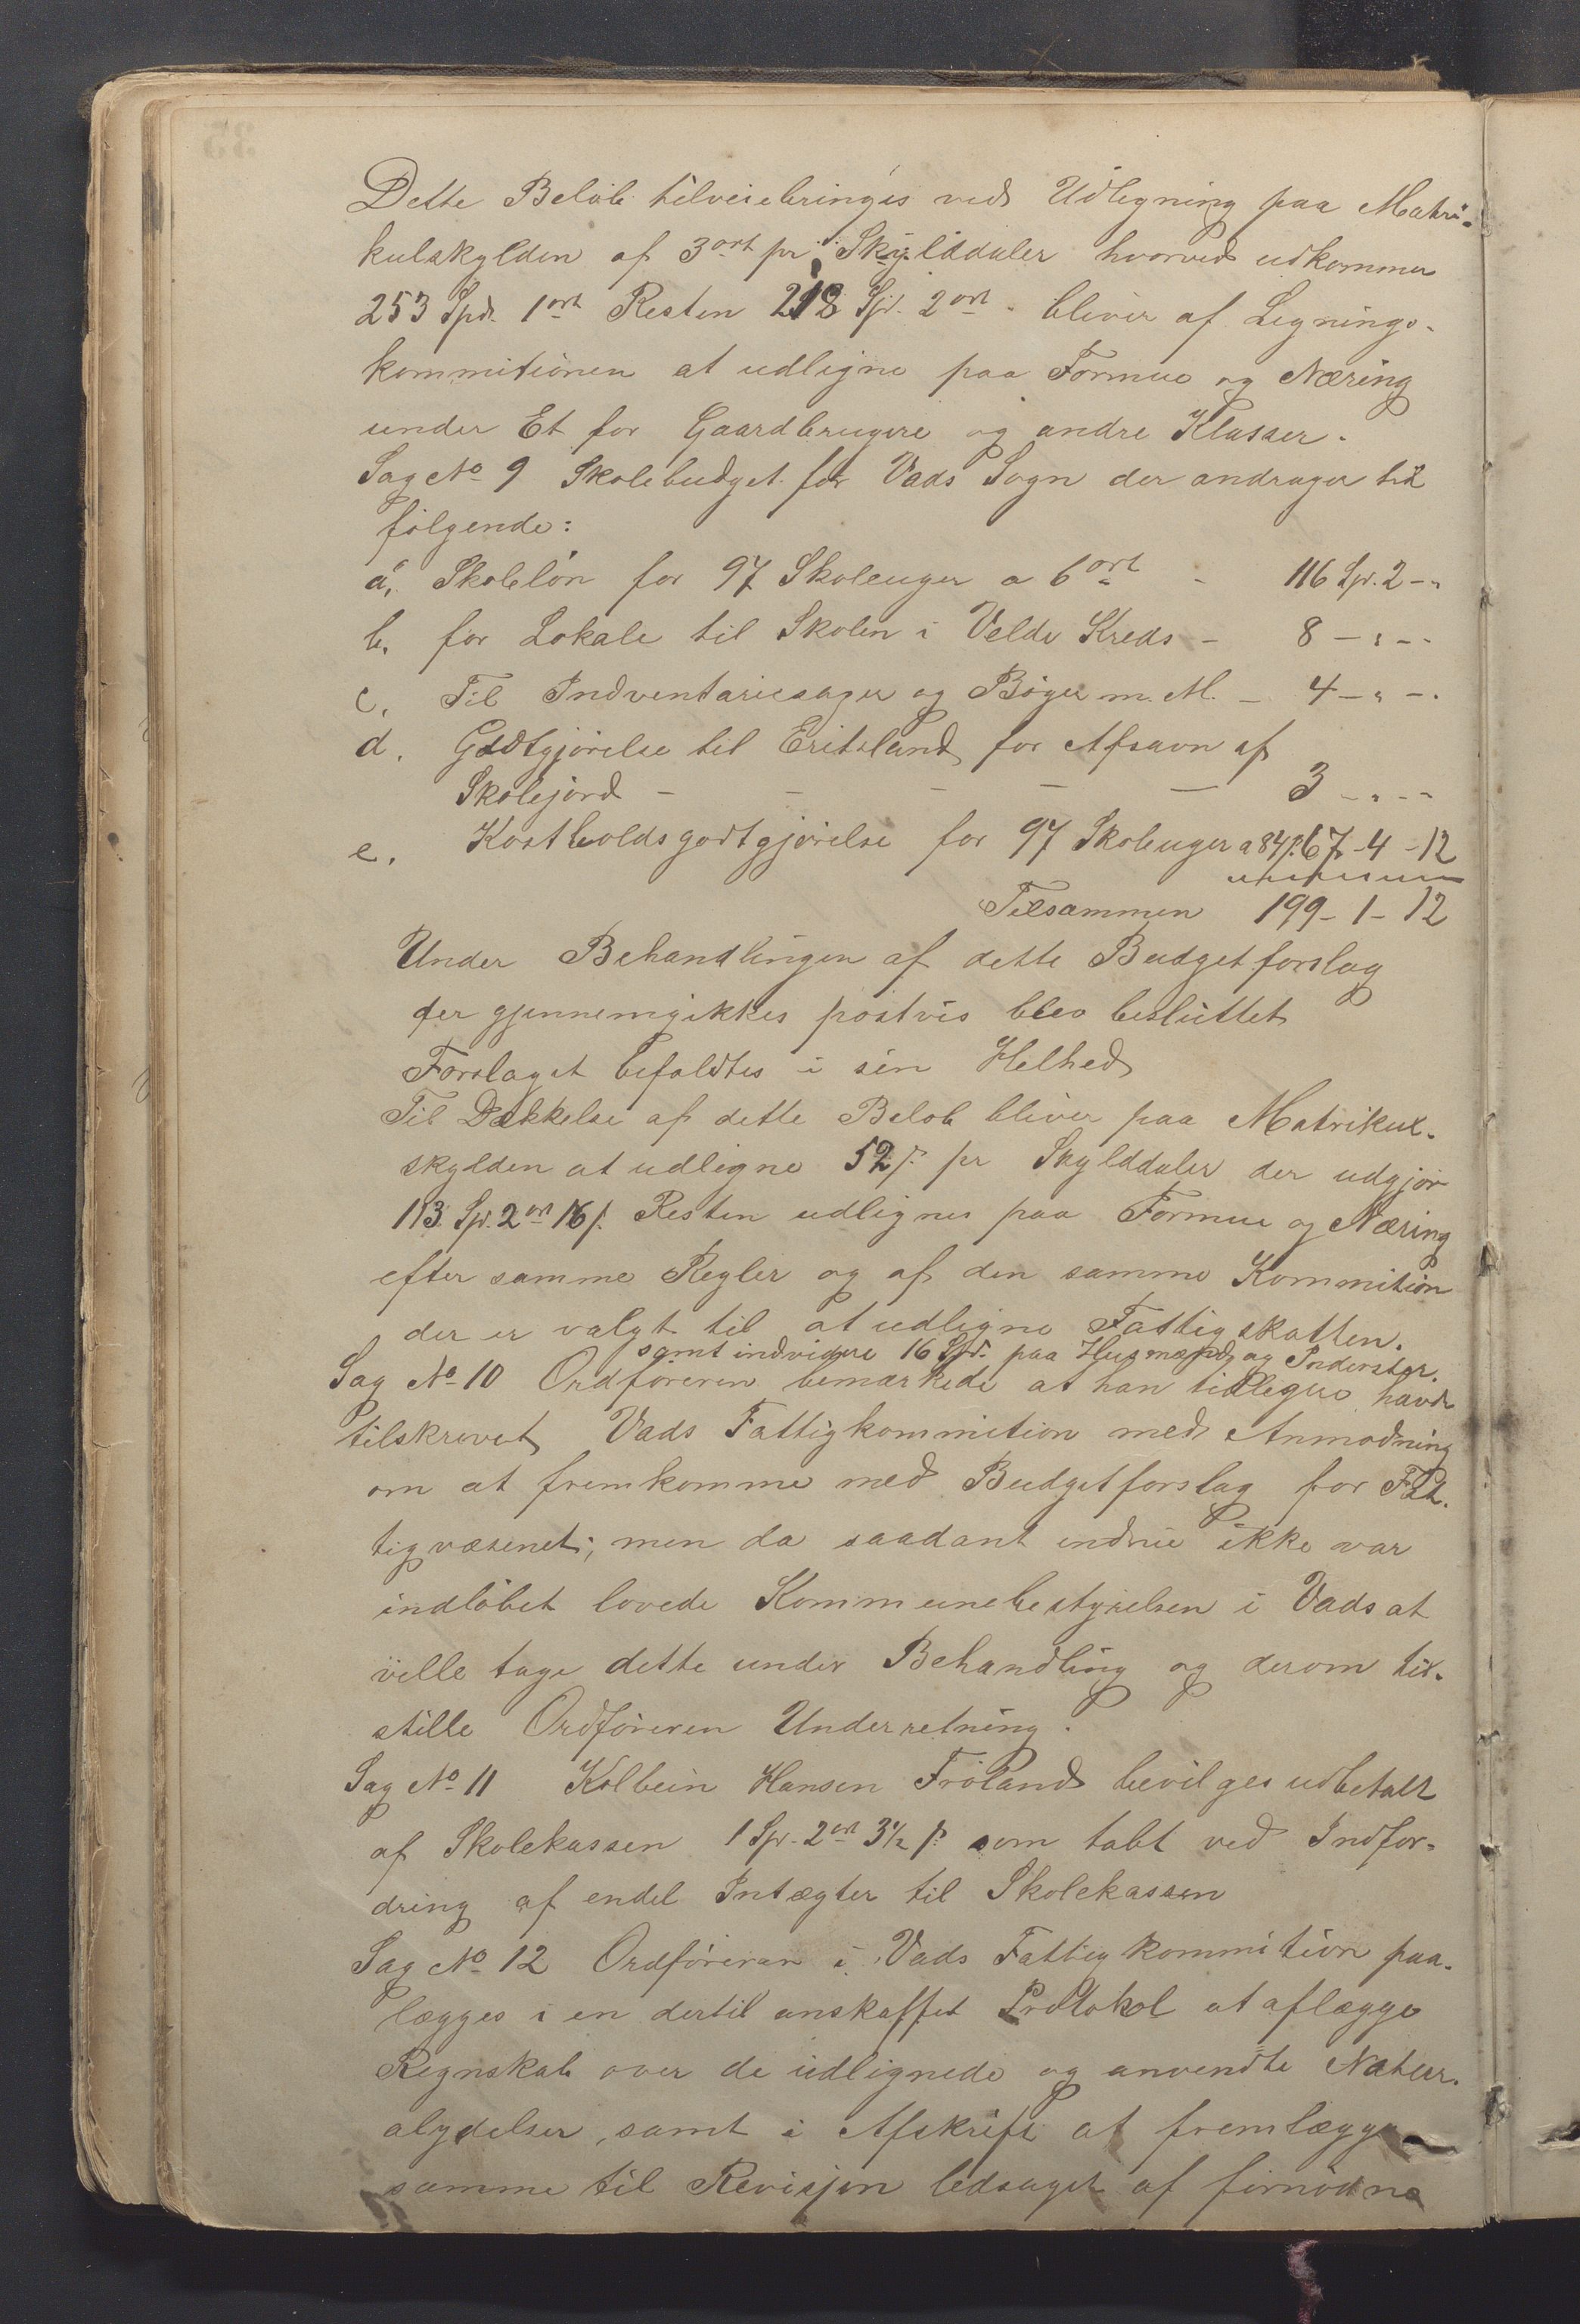 Dette Beløb tilveiebringes ved Udlegning paa Matri-
kulskylden af 3 ort pr. Skylddaler hvorved udkommer
253 Spd. 1 ort Resten 218 Spd. 2 ort bliver af Lignings-
kommitionen at udligne paa Formue og Næring
under Et for Gaardbrugere og andre Klasser.
Sag No 9 Skolebudget for Vads Sogn der andrager til
følgende:
a. Skoleløn for 97 Skoleuger a 6 ort - 116 Sp. 2 - "
b. for Lokale til Skolen i Velde Kreds - 8 - " - -
c. Til Indventariesager og Bøger m. M. - 4 - " - .
d. Godtgjørelse til Eritsland for Afsavn af
Skolejord - - - - - 3 - " - -
e. Kostholdsgodtgjørelse for 97 Skoleuger a 84 s. 67 - 4 - 12
Tilsammen 199 - 1 - 12
Under Behandlingen af dette Budgetforslag
der gjennemgikkes postvis blev besluttet
Forslaget befaldtes i sin Helhed
Til Dækkelse af dette Beløb bliver paa Matrikul-
skylden at udligne 52 s. pr Skylddaler der udgjør
113 Sp. 2 ort 16 s. Resten udlignes paa Formue og Næring
efter samme Regler og af den samme Kommition
der er valgt til at udligne Fattigskatten.
samt indvidere 16 Spd. paa Husmænd og Inderster.
Sag No 10 Ordføreren bemærkede at han tidligere havde
tilskrevet Vads Fattigkommition med Anmodning
om at fremkomme med Budgetforslag for Fat-
tigvæsenet; men da saadant endnu ikke var
indløbet lovede Kommunebestyrelsen i Vads at
ville tage dette under Behandling og derom til-
stille Ordføreren Underretning.
Sag No 11 Kolbein Hansen Frøland bevilges udbetalt
af Skolekassen 1 Sp. 2 ort 3 1/2 s. som tabt ved Indfor-
dring af endel Intægter til Skolekassen
Sag No 12 Ordføreren i Vads Fattigkommition paa-
lægges i en dertil anskaffet Protokol at aflægge
Regnskab over de udlignede og anvendte Natur-
alydelser, samt i Afskrift at fremlægge
samme til Revisjon ledsaget af fornødne